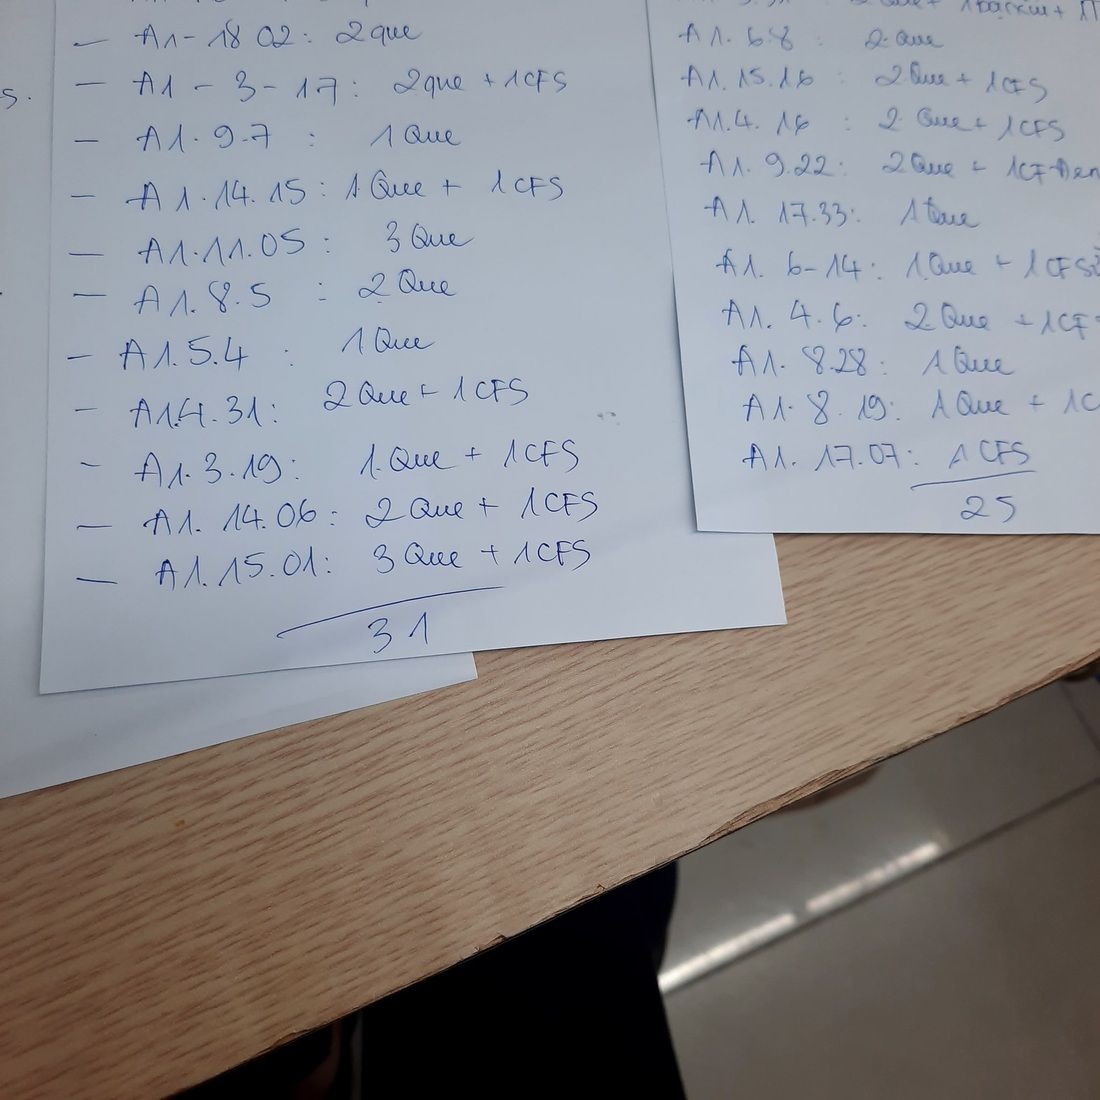 — A1-18 02: 2que
— A1 - 3-17: 2que + 1CFS
— A1.9.7 : 1 Que
— A1.14.15: 1 Que + 1 CFS
— A1.11.05 : 3 Que
— A1.8.5 : 2 Que
— A1.5.4 : 1 Que
— A1.4.31: 2 Que + 1 CFS
— A1.3.19: 1 Que + 1 CFS
— A1.14.06: 2 Que + 1 CFS
— A1.15.01: 3 Que + 1CFS
31
s.
A1.6.8 : 2 Que
A1.15.16 : 2 Que + 1 CFS
A1.4.16 : 2 Que + 1 CFS
A1.9.22: 2 Que + 1CF
A1.17.33: 1 Que
A1.6-14: 1 Que + 1 CFS
A1.4.6: 2 Que + 1CF
A1.8.28: 1 Que
A1.8.19: 1 Que + 1C
A1.17.07: 1 CFS
25